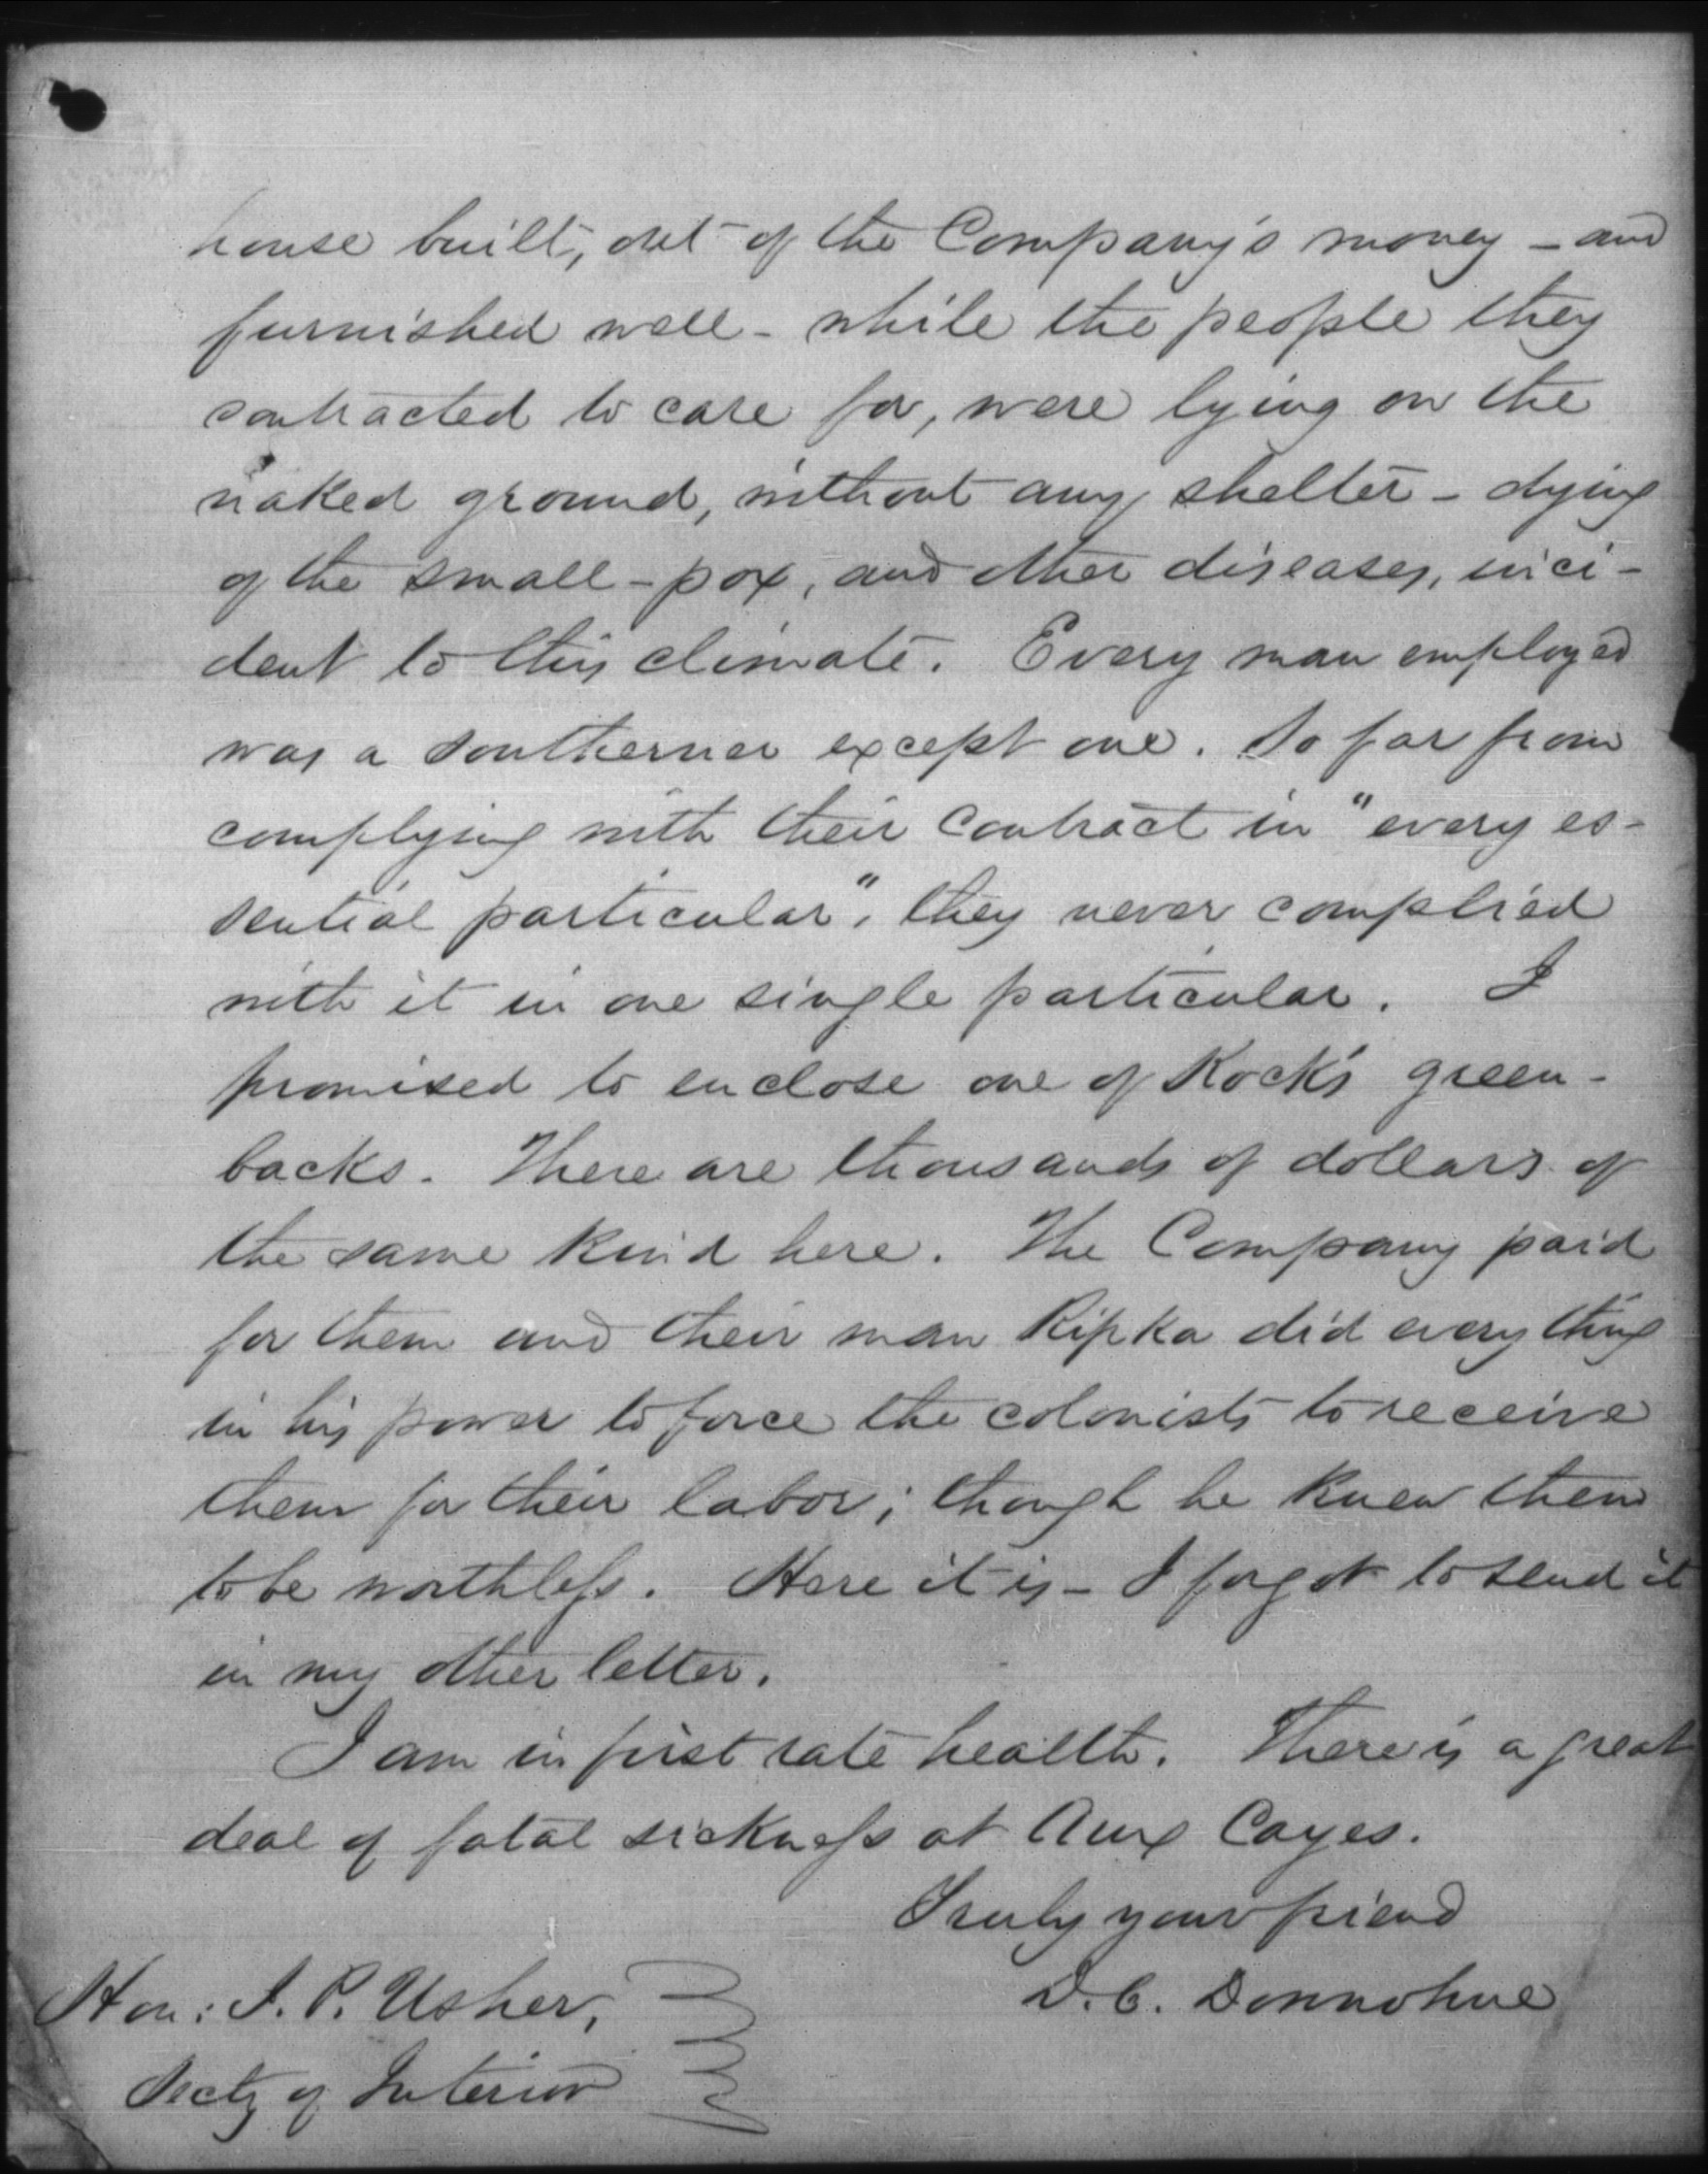 house built, out of the Company's money – and
furnished well – while the people they
contracted to care for, were lying on the
naked ground, without any shelter – dying
of the small-pox, and other diseases, inci-
dent to this climate. Every man employed
was a southerner except one. So far from
complying with their contract in "every es-
sential particular", they never complied
with it in one single particular. I
promised to enclose one of Kock's green-
backs. There are thousands of dollars of
the same kind here. The Company paid
for them and their man Ripka did every thing
in his power to force the colonists to receive
them for their labor; though he knew them
to be worthless. Here it is – I forgot to send it
in my other letter.
I am in first rate health. There is a great
deal of fatal sickness at Aux Cayes.
Truly your friend
D. C. Donnohue
Hon: J. P. Usher,
Secty of Interior